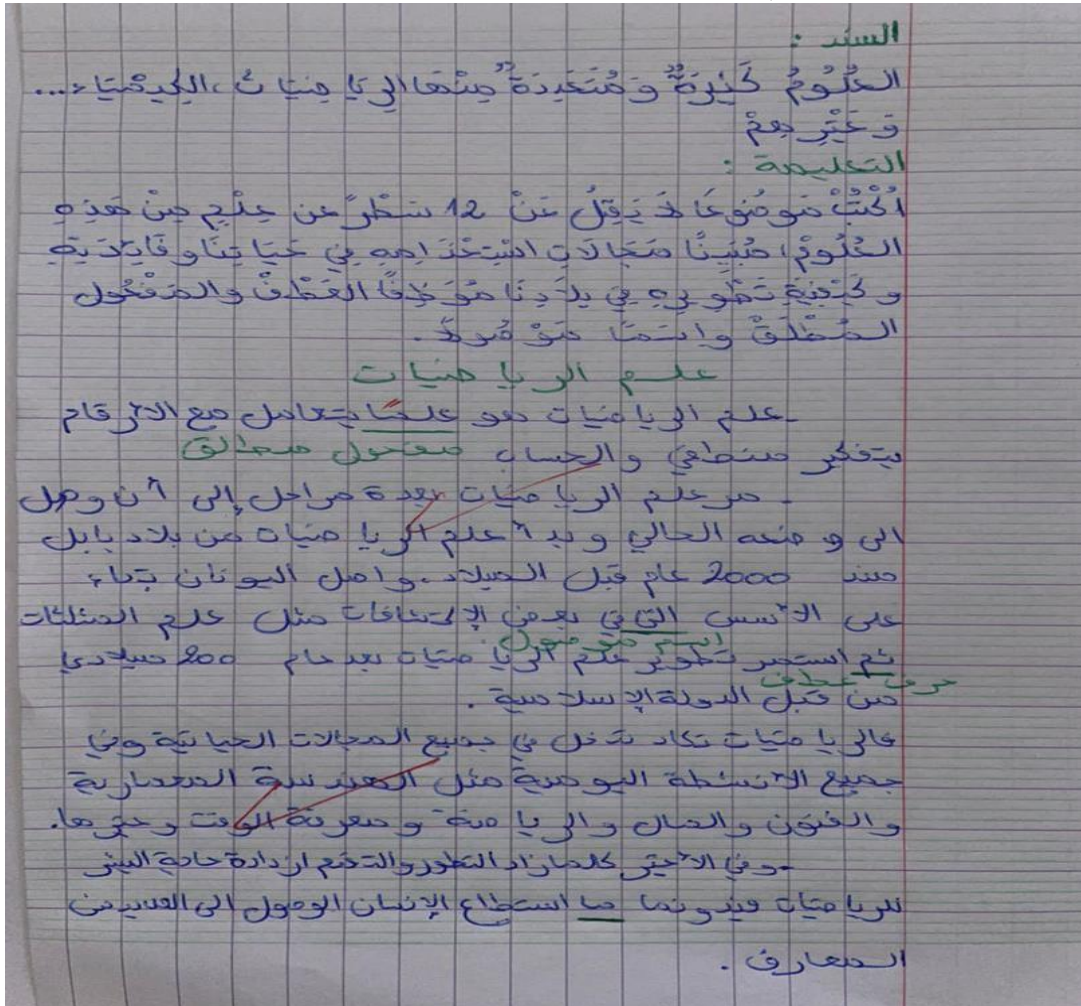 السند :
العُلُومُ كَثِيرَةٌ وَمُتَعَدِدَةٌ مِنْهَا الرِيَاضِيَاتُ، الكِيمْيَاء،...
وَغَيْرِهِمْ
التعليمة :
اُكْتُبْ مَوضُوعًا لَا يَقِلُ عَنْ 12 سَطْرً عن عِلْمٍ مِنْ هَذِهِ
العُلُومْ، مُبَيِنًا مَجَالَاتِ اسْتِخْدَامِهِ فِي حَيَاتِنَا وفَائِدَتِهِ
و كَيْفِيَةِ تَطْوِيرِهِ فِي بِلَادِنَا مُوَظِفًا العَطْفْ والمَفْعُول
المُطْلَقْ وإسْمًا مَوْصُولً.
علم الرياضيات
-علم الرياضيات هو علمًا يتعامل مع الأرقام
بتفكير منطقي والحساب مفعول مطالق
- مر علم الرياضيات بعدة مراحل إلى أن وصل
الى وضعه الحالي وبدأ علم الرياضيات من بلاد بابل
منذ 2000 عام قبل الميلاد. واصل اليونان بناء
على الأسس التي في بعض الإكتشافات مثل علم المثلثات
اسم موصول.
ثم استمر تطوير علم الرياضيات بعد عام 200 ميلادي
حرف عطف
من قبل الدولة الإسلامية .
فالرياضيات تكاد تدخل في جميع المجالات الحياتية وفي
جميع الأنشطة اليومية مثل الهندسة المعمارية
والفنون والمال والرياضة ومعرفة الوقت وغيرها.
-وفي الأخير كلما زاد التطور والتقدم ازدادة حاجة البشر
للرياضيات فبدونها ما استطاع الإنسان الوصول الى العديد من
المعارف .